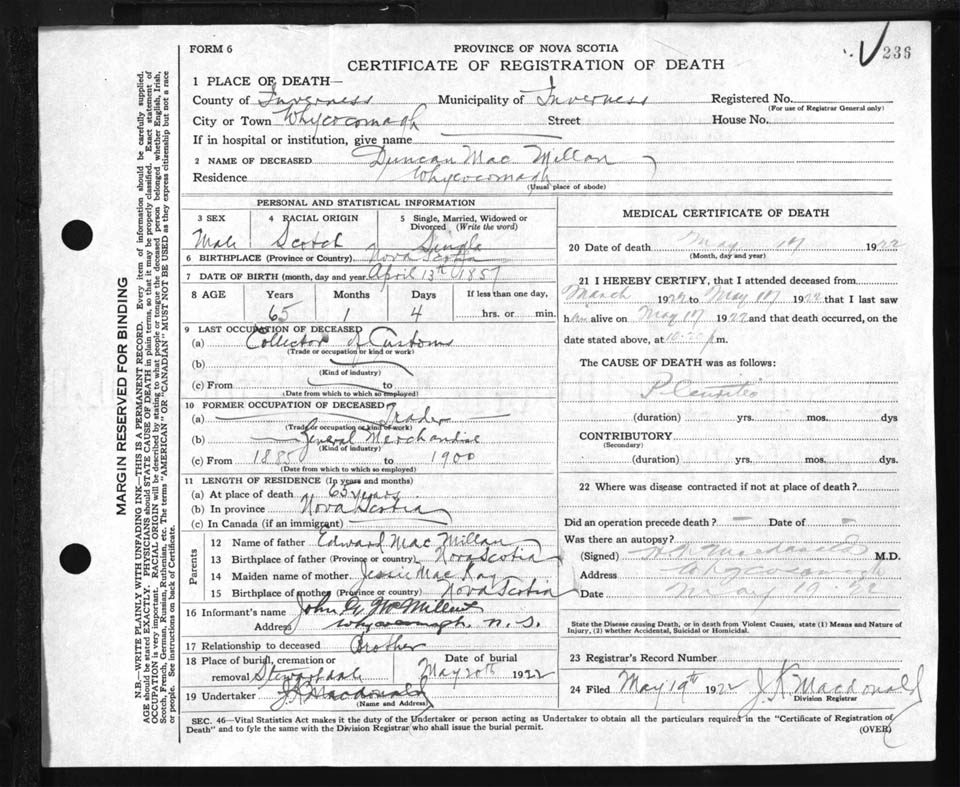 FORM 6
PROVINCE OF NOVA SCOTIA
236
CERTIFICATE OF REGISTRATION OF DEATH
1 PLACE OF DEATH—
County of Inverness Municipality of Inverness Registered No.
(For use of Registrar General only)
City or Town Whycocomagh Street House No.
If in hospital or institution, give name
2 NAME OF DECEASED Duncan Mac Millan
Residence Whycocomagh
(Usual place of abode)
PERSONAL AND STATISTICAL INFORMATION
3 SEX 4 RACIAL ORIGIN 5 Single, Married, Widowed or Divorced (Write the word)
Male Scotch Single
6 BIRTHPLACE (Province or Country) Nova Scotia
7 DATE OF BIRTH (month, day and year) April 13th 1857
8 AGE Years Months Days If less than one day,
65 1 4 hrs. or min.
9 LAST OCCUPATION OF DECEASED
(a) Collector of Customs
(Trade or occupation or kind or work)
(b)
(Kind of industry)
(c) From to
(Date from which to which so employed)
10 FORMER OCCUPATION OF DECEASED
(a) Trader
(Trade or occupation or kind of work)
(b) General Merchandise
(Kind of industry)
(c) From 1885 to 1900
(Date from which to which so employed)
11 LENGTH OF RESIDENCE (In years and months)
(a) At place of death 65 years
(b) In province Nova Scotia
(c) In Canada (if an immigrant)
Parents
12 Name of father Edward Mac Millan
13 Birthplace of father (Province or country) Nova Scotia
14 Maiden name of mother Jessie MacKay
15 Birthplace of mother (Province or country) Nova Scotia
16 Informant's name John G. McMillan
Address Whycocomagh. N. S.
17 Relationship to deceased Brother
18 Place of burial, cremation or removal Stewartdale Date of burial May 20th 1922
19 Undertaker J. K. Macdonald
(Name and Address)
MEDICAL CERTIFICATE OF DEATH
20 Date of death May 17 1922
(Month, day and year)
21 I HEREBY CERTIFY, that I attended deceased from
March 1922 to May 17 1922 that I last saw
him alive on May 17 1922 and that death occurred, on the
date stated above, at m.
The CAUSE OF DEATH was as follows:
Pleuritis
(duration) yrs. mos. dys
CONTRIBUTORY
(Secondary)
(duration) yrs. mos. dys.
22 Where was disease contracted if not at place of death?
Did an operation precede death? – Date of –
Was there an autopsy?
(Signed) Macdonald M.D.
Address Whycocomagh
Date May 19 '22
State the Disease causing Death, or in death from Violent Causes, state (1) Means and Nature of
Injury, (2) whether Accidental, Suicidal or Homicidal.
23 Registrar's Record Number
24 Filed May 19th 1922 J. K. Macdonald
Division Registrar
SEC. 46—Vital Statistics Act makes it the duty of the Undertaker or person acting as Undertaker to obtain all the particulars required in the "Certificate of Registration of
Death" and to fyle the same with the Division Registrar who shall issue the burial permit.
(OVER)
MARGIN RESERVED FOR BINDING
N.B.—WRITE PLAINLY WITH UNFADING INK—THIS IS A PERMANENT RECORD. Every item of information should be carefully supplied.
AGE should be stated EXACTLY. PHYSICIANS should STATE CAUSE OF DEATH in plain terms, so that it may be properly classified. Exact statement of
OCCUPATION is very important. RACIAL ORIGIN will be described by stating to what people or tongue the deceased person belonged whether English, Irish,
Scotch, French, German, Russian, Ruthenian, etc. The terms "AMERICAN" OR "CANADIAN" MUST NOT BE USED as they express citizenship but not a race
or people. See instructions on back of Certificate.